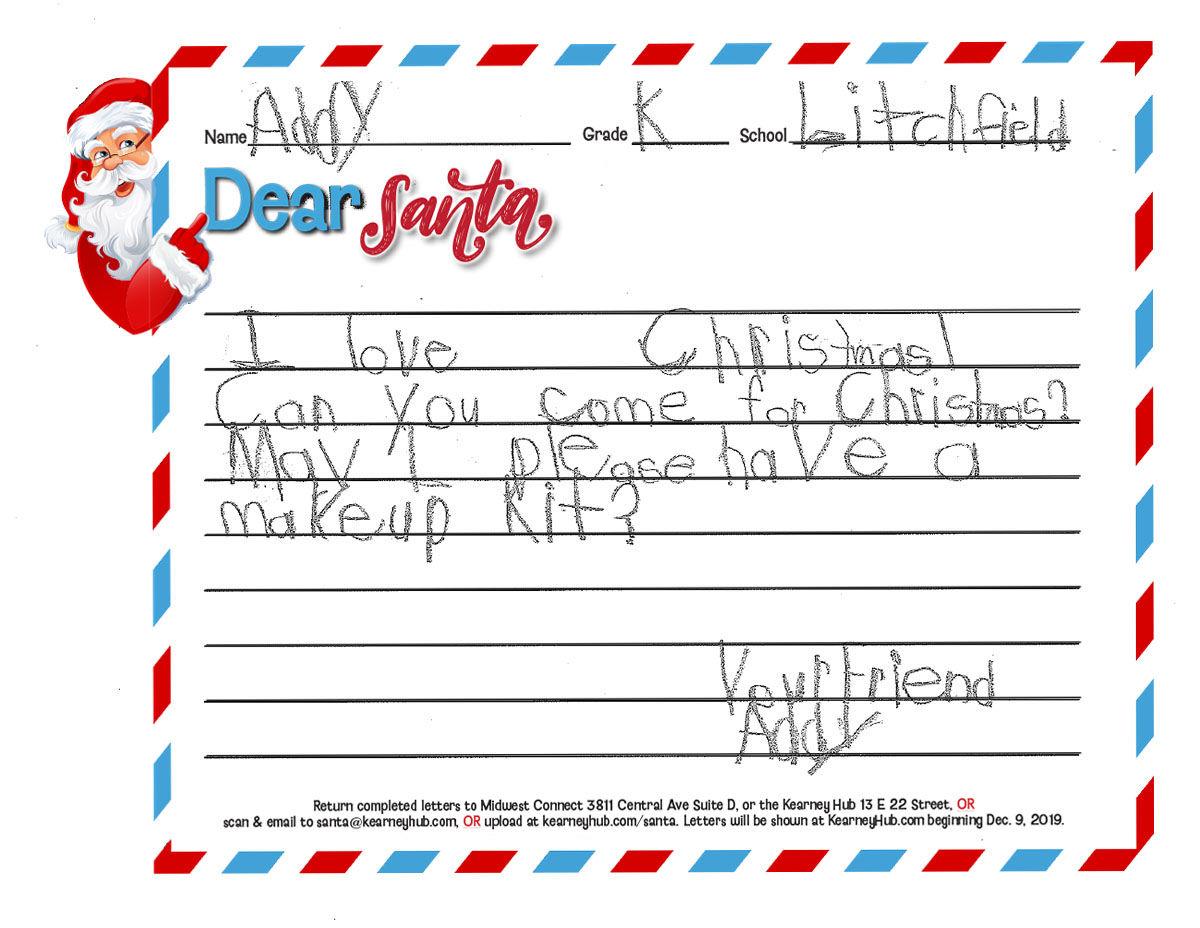 Name Addy Grade K School Litchfield
Dear Santa
I love Christmas!
Can you come for Christmas?
May I please have a
makeup Kit?
Your friend
Addy
Return completed letters to Midwest Connect 3811 Central Ave Suite D, or the Kearney Hub 13 E 22 Street, OR
scan & email to santa@kearneyhub.com, OR upload at kearneyhub.com/santa. Letters will be shown at KearneyHub.com beginning Dec. 9, 2019.